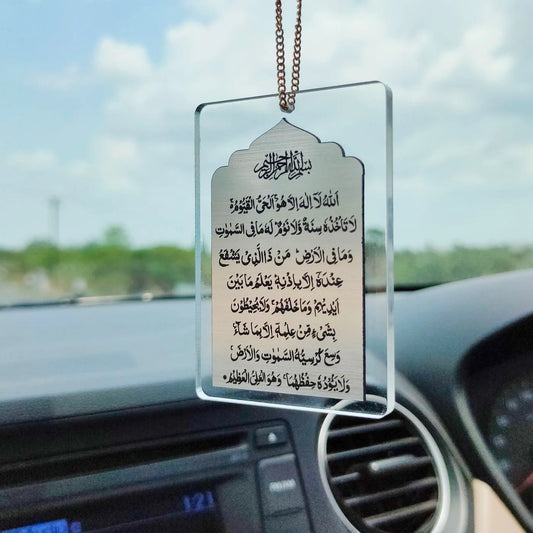 بسم الله الرحمن الرحيم
اَللهُ لَآ اِلٰهَ اِلَّا هُوَۚ اَلْحَیُّ الْقَیُّوْمُ ۚ
لَا تَاْخُذُهٗ سِنَةٌ وَّلَا نَوْمٌ لَهٗ مَا فِی السَّمٰوٰتِ
وَمَا فِی الْاَرْضِ مَنْ ذَا الَّذِیْ یَشْفَعُ
عِنْدَهٗۤ اِلَّا بِاِذْنِهٖ یَعْلَمُ مَا بَیْنَ
اَیْدِیْهِمْ وَمَا خَلْفَهُمْ ۚ وَلَا یُحِیْطُوْنَ
بِشَیْءٍ مِّنْ عِلْمِهٖۤ اِلَّا بِمَا شَآءَ ۚ
وَسِعَ كُرْسِیُّهُ السَّمٰوٰتِ وَالْاَرْضَ
وَلَا یَؤُدُهٗ حِفْظُهُمَا ۚ وَهُوَ الْعَلِیُّ الْعَظِیْمُ
121